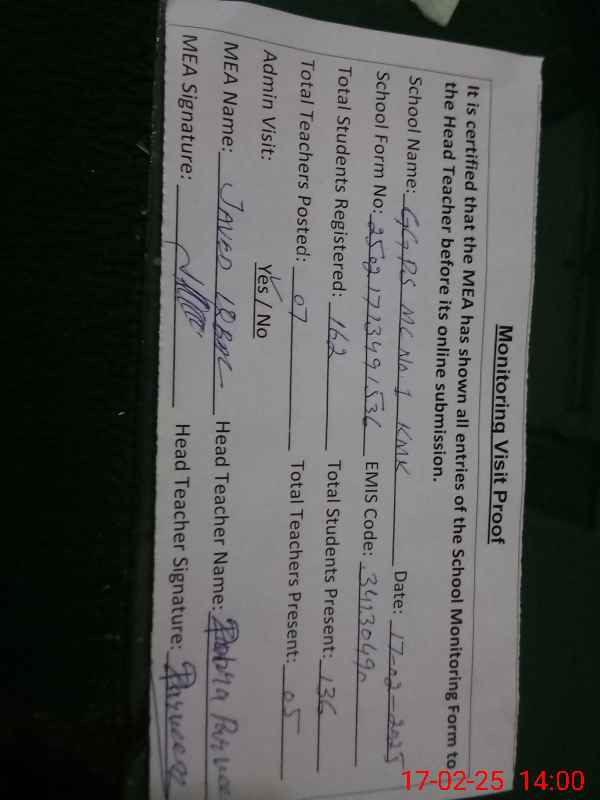 Monitoring Visit Proof
It is certified that the MEA has shown all entries of the School Monitoring Form to
the Head Teacher before its online submission.
School Name: GGPS MC No 1 KMK Date: 17-02-2025
School Form No: 25021713491536 EMIS Code: 34130490
Total Students Registered: 162 Total Students Present: 136
Total Teachers Posted: 07 Total Teachers Present: 05
Admin Visit: Yes / No
MEA Name: JAVED IQBAL Head Teacher Name: Parveen
MEA Signature: Head Teacher Signature: Parveen
17-02-25 14:00